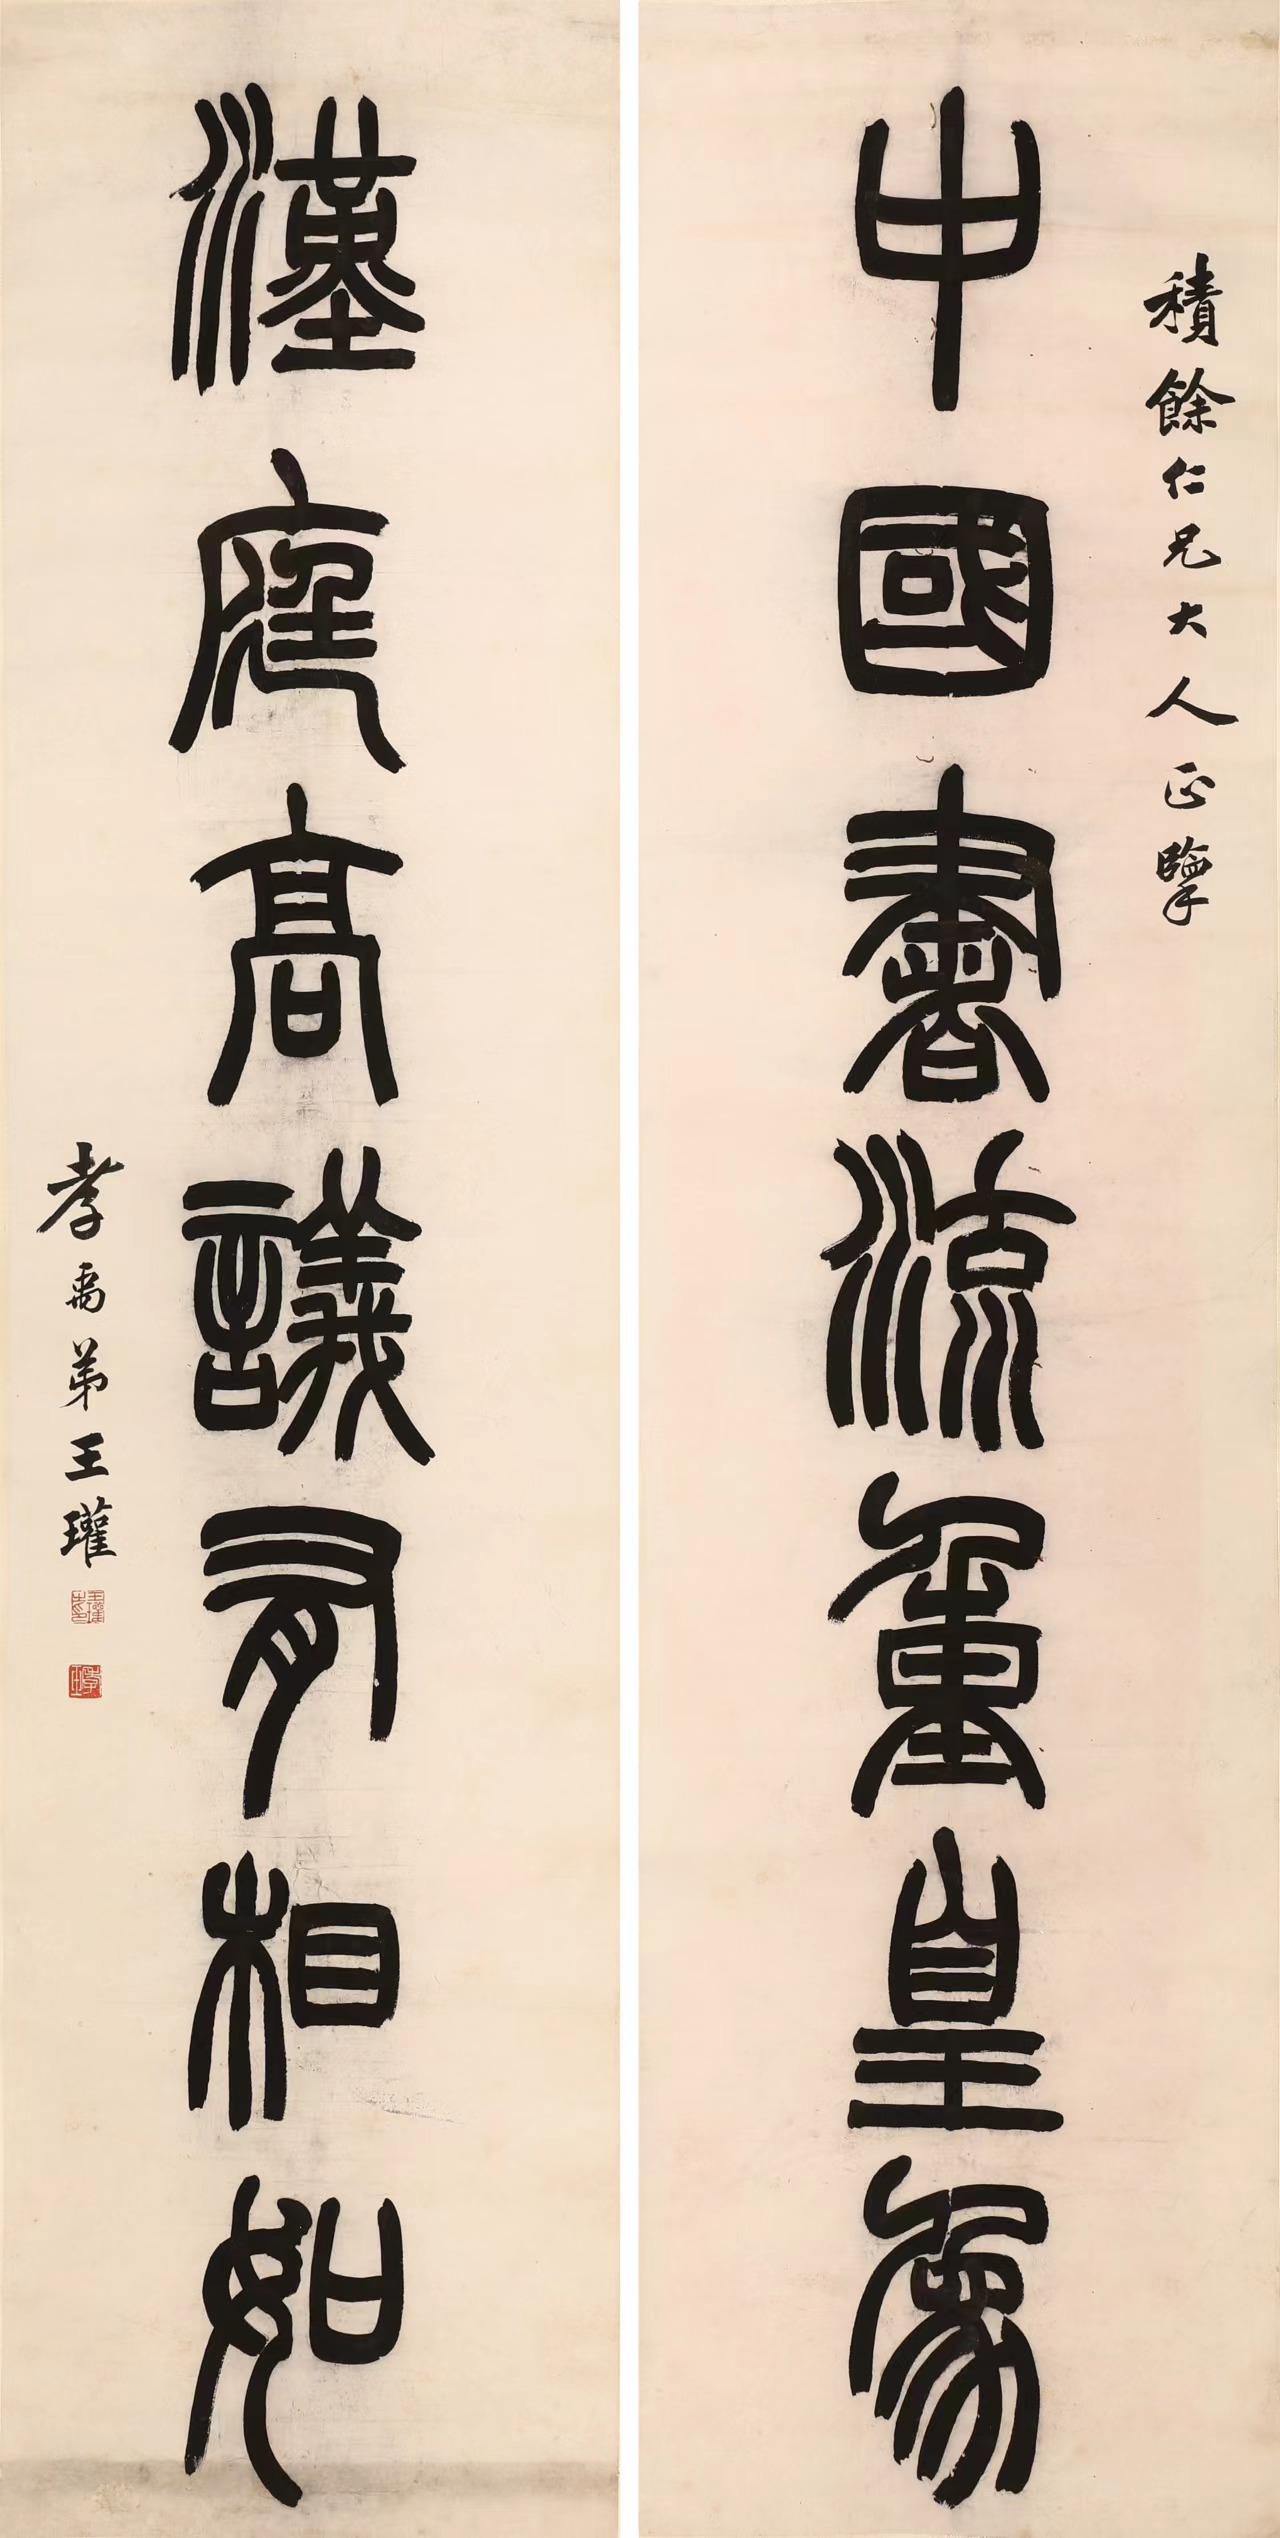 積餘仁兄大人正擥
中國書流皇象
漢庭高議有相如
孝禹弟王瓘